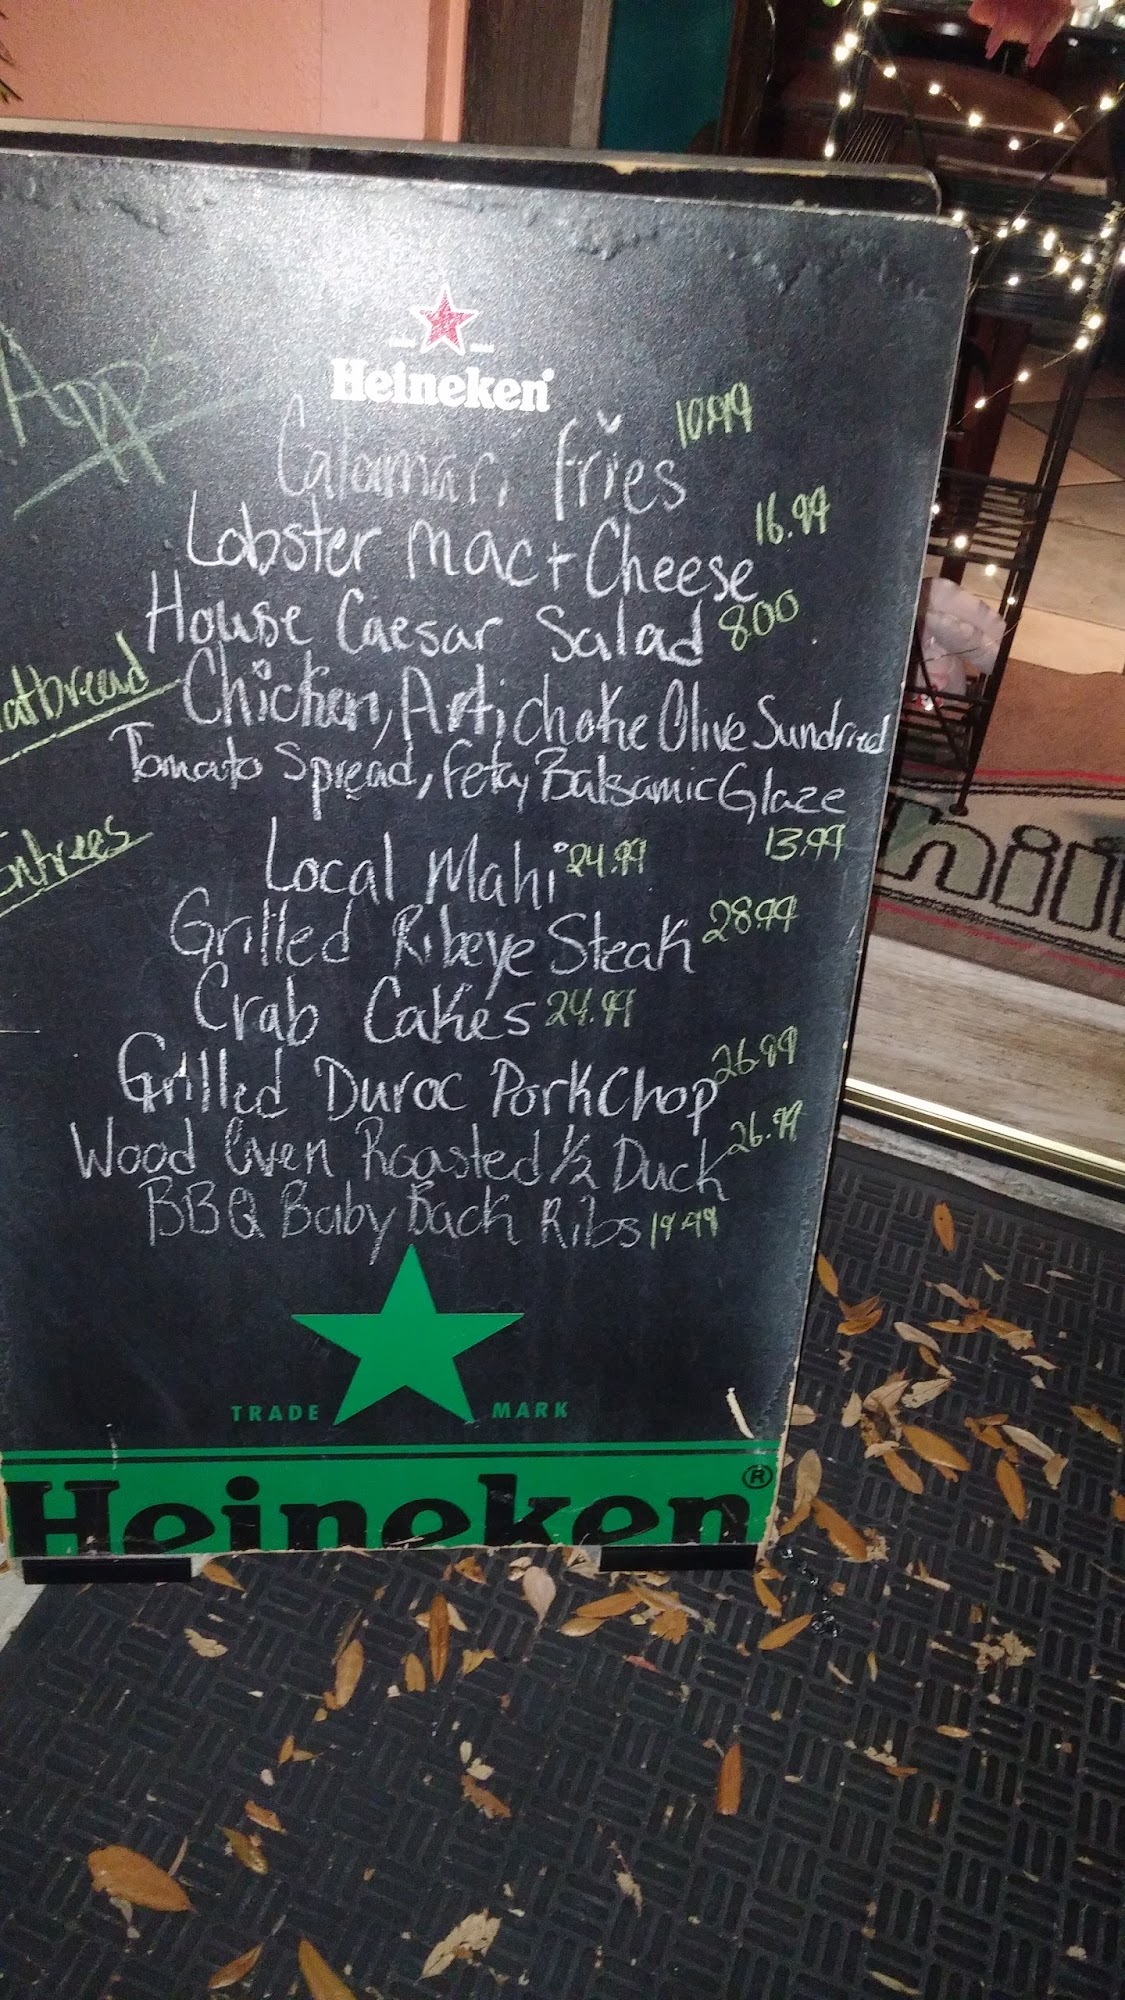 Heineken
App
Calamari fries 10.99
Lobster mac + Cheese 16.99
House Caesar Salad 8.00
Chicken, Artichoke Olive Sundried
Tomato Spread, Feta, Balsamic Glaze
13.99
Entrees
Local Mahi 24.99
Grilled Ribeye Steak 28.99
Crab Cakes 24.99
Grilled Duroc Pork Chop 26.99
Wood Oven Roasted 1/2 Duck 26.99
BBQ Baby Back Ribs 19.99
TRADE MARK
Heineken®